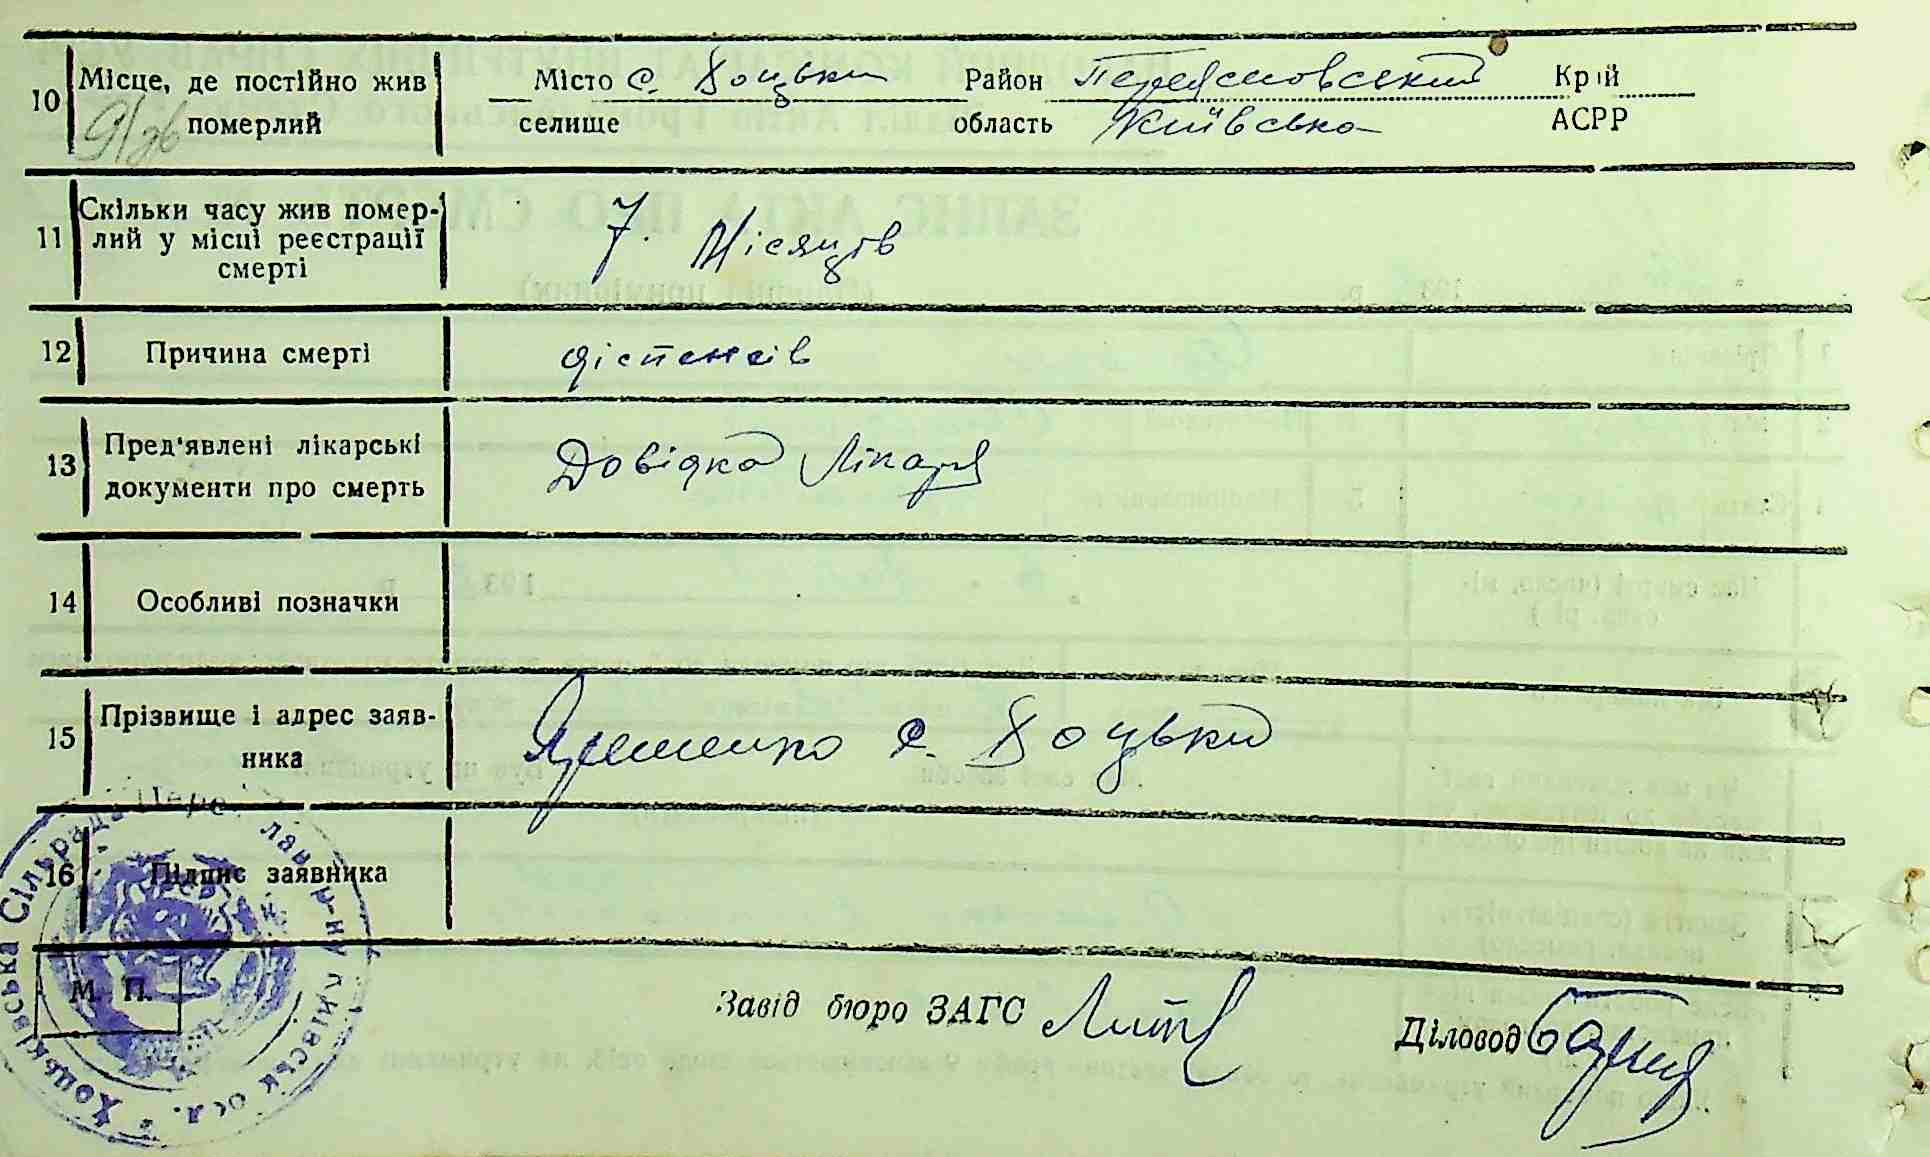 10 Місце, де постійно жив померлий
Місто с. Хоцьки Район Переяславський Край
селище область Київська АСРР
11 Скільки часу жив помер-
лий у місці реєстрації
смерті
7. Місяців
12 Причина смерті
13 Пред'явлені лікарські
документи про смерть
Довідка Лікаря
14 Особливі позначки
15 Прізвище і адрес заяв-
ника
Яременко с. Хоцьки
16 Підпис заявника
М. П.
Хоцьківська Сільрада
Київськ обл.
Завід бюро ЗАГС
Діловод